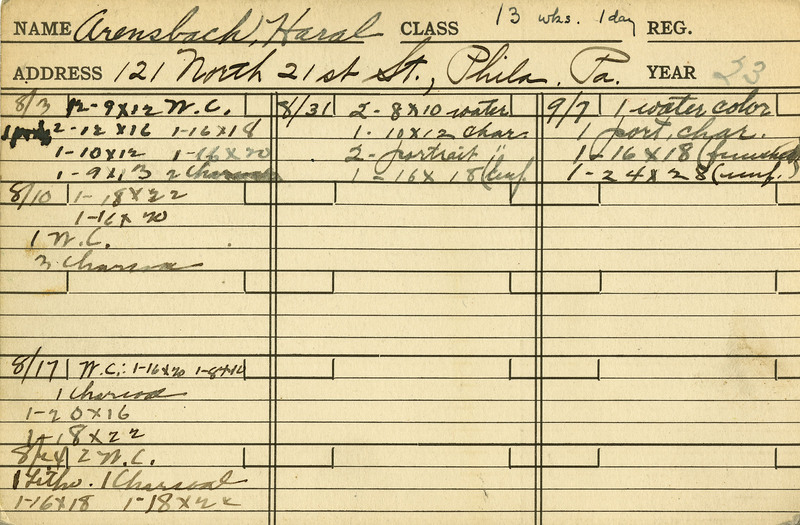 NAME Arensbach, Haral CLASS 13 wks. 1 day REG.
ADDRESS 121 North 21st St., Phila. Pa. YEAR 23
8/3 2-9x12 W.C.
2-12x16 1-16x18
1-10x12 1-16x20
1-9x13 2 Charcoal
8/10 1-18x22
1-16x20
1 W.C.
3 Charcoal
8/17 W.C: 1-16x20 1-8x10
1 Charcoal
1-20x16
1-18x22
8/24 2 W.C.
1 Litho. 1 Charcoal
1-16x18 1-18x22
8/31 2-8x10 water
1-10x12 char.
2-portrait "
1-16x18 (unf.
9/7 1-water color
1 port. char.
1-16x18 (finished)
1-24x28 (unf.)